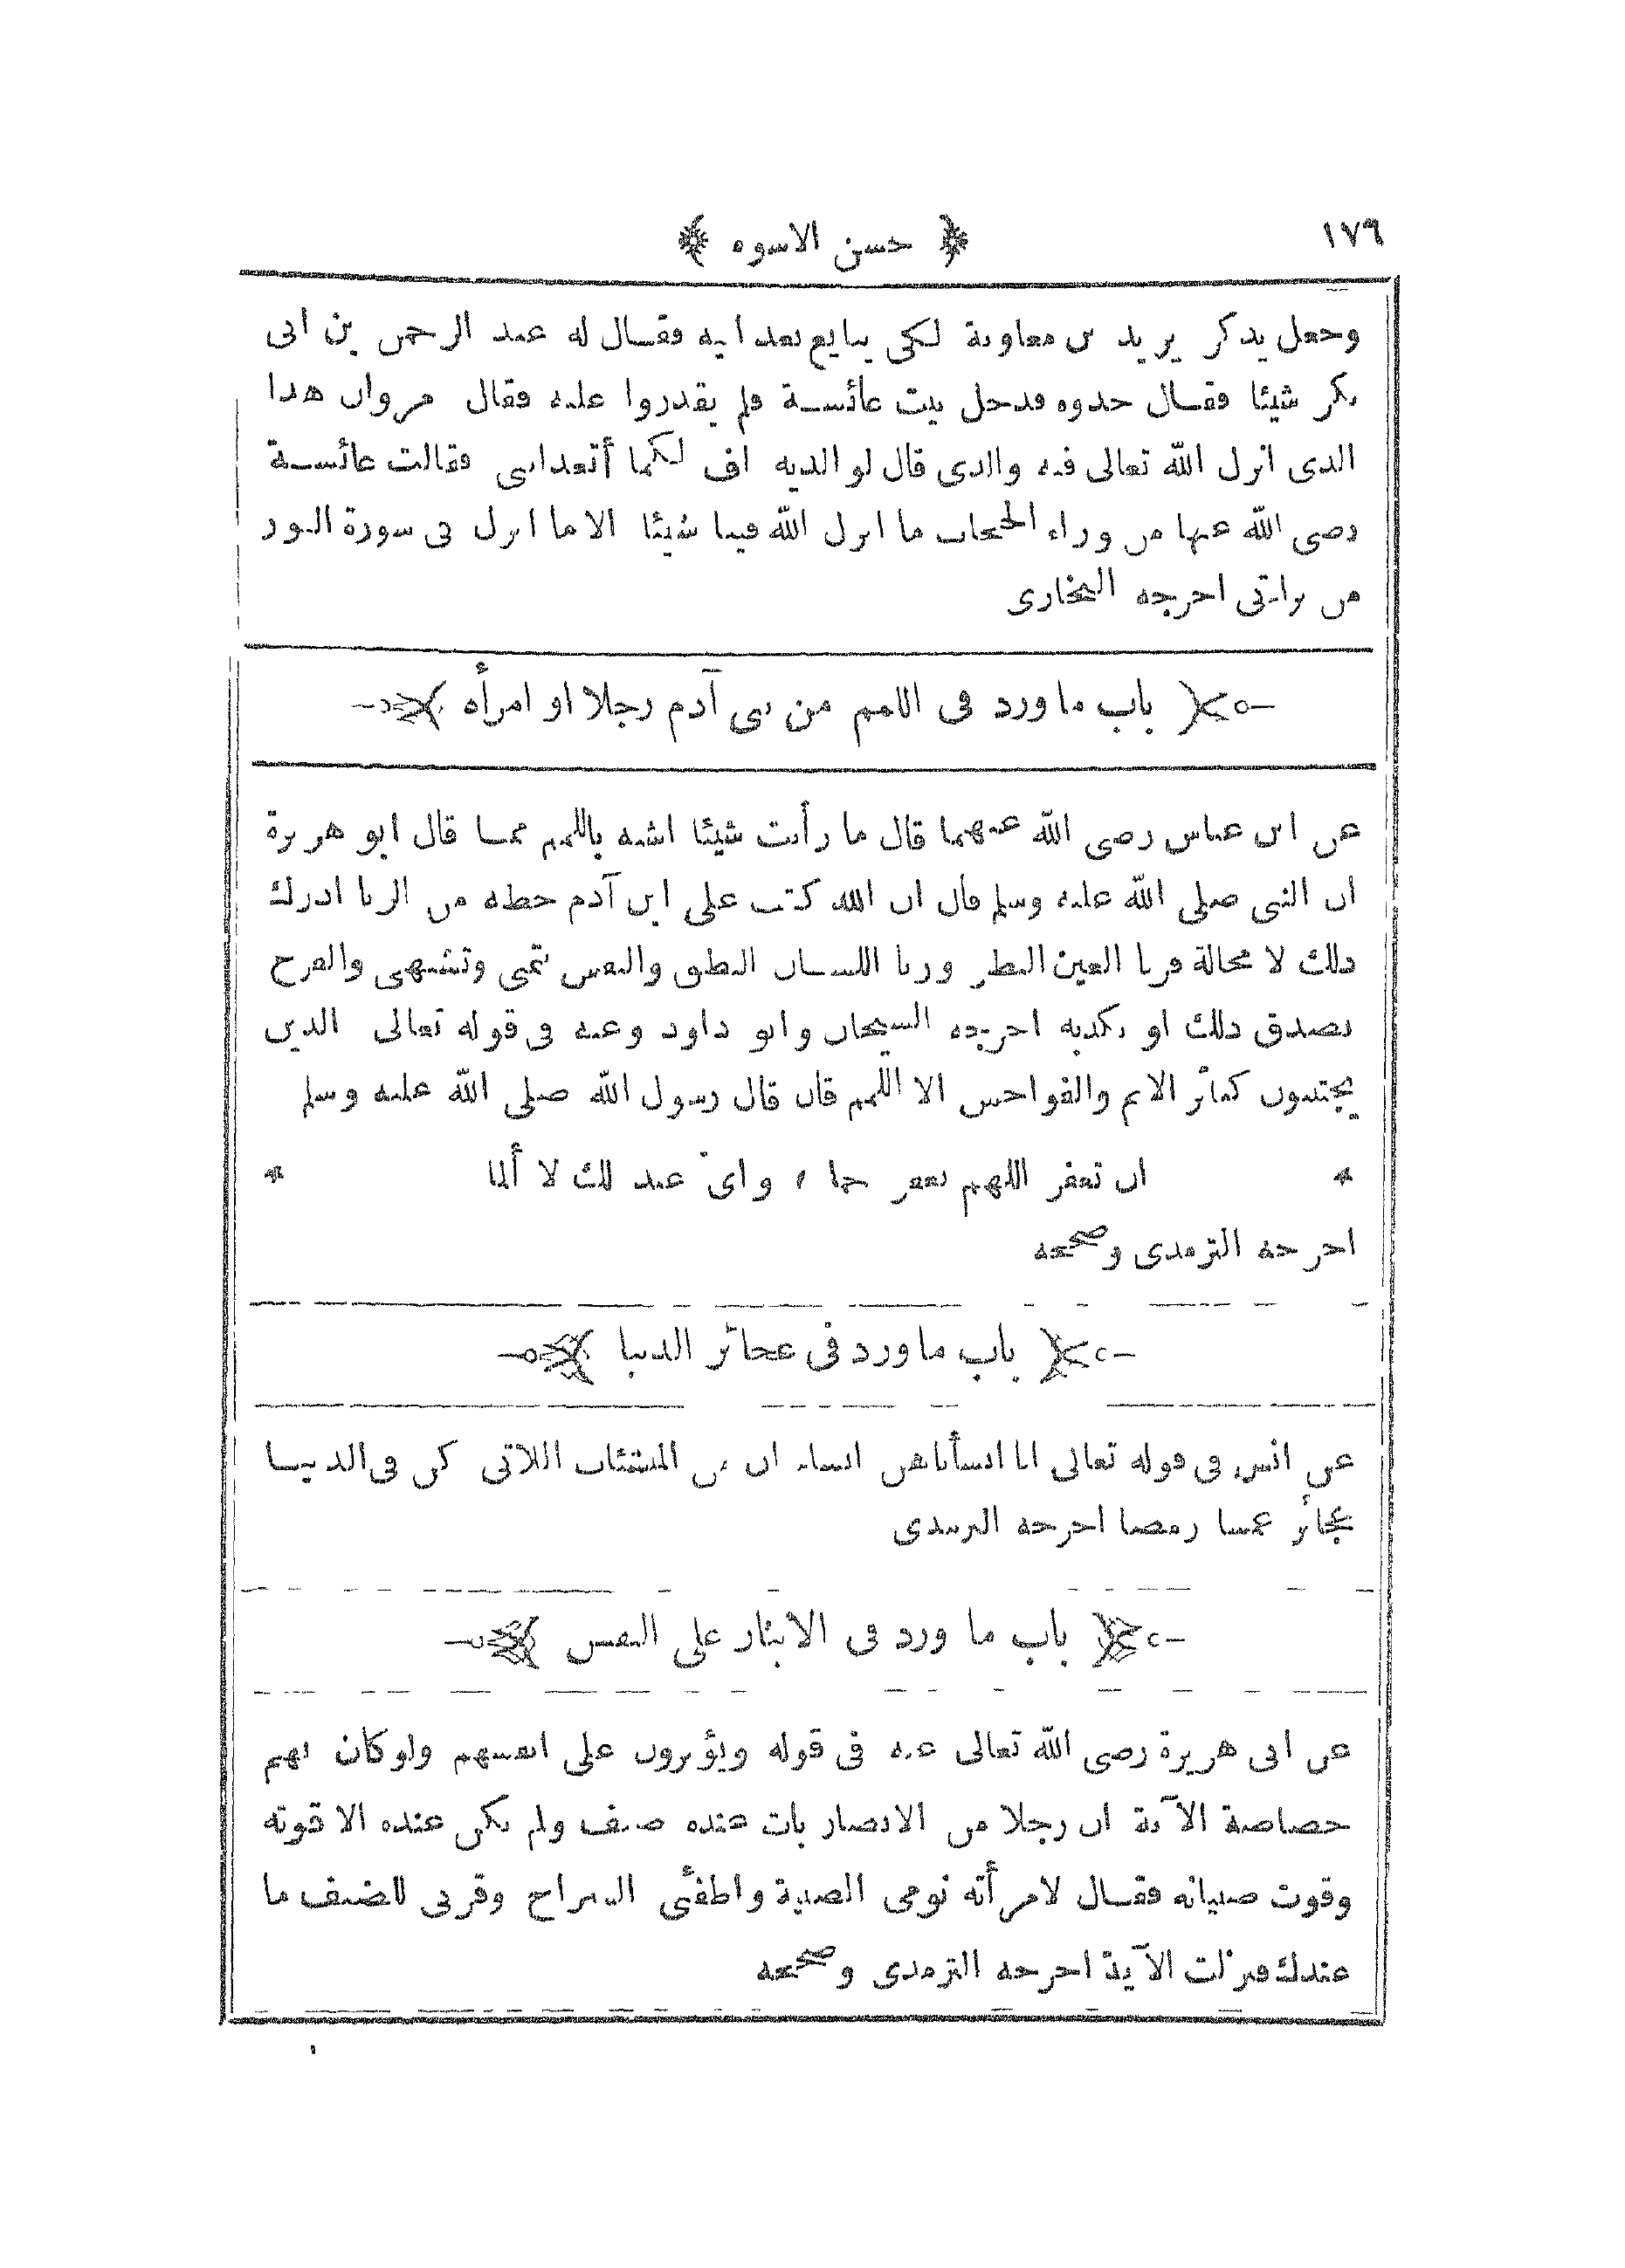 ١٧٦ ﴿ حسن الاسوه ﴾
وجعل يذكر يزيد بن معاوية لكى يبايع بعد ابيه فقال له عبد الرحمن بن ابى
بكر شيئا فقال خذوه فدخل بيت عائشة فلم يقدروا عليه فقال مروان هذا
الذى انزل الله تعالى فيه والذى قال لوالديه اف لكما أتعداننى فقالت عائشة
رضى الله عنها من وراء الحجاب ما انزل الله فينا شيئا الا ما انزل فى سورة النور
من براءتى اخرجه البخارى
﴿ باب ما ورد فى اللمم من بنى آدم رجلا او امرأه ﴾
عن ابن عباس رضى الله عنهما قال ما رأيت شيئا اشبه باللمم مما قال ابو هريرة
ان النبى صلى الله عليه وسلم قال ان الله كتب على ابن آدم حظه من الزنا ادرك
ذلك لا محالة فزنا العين النظر وزنا اللسان النطق والنفس تمنى وتشتهى والفرج
يصدق ذلك او يكذبه اخرجه الشيخان وابو داود وعنه فى قوله تعالى الذين
يجتنبون كبائر الاثم والفواحش الا اللمم قال قال رسول الله صلى الله عليه وسلم
* ان تغفر اللهم تغفر جما * واى عبد لك لا ألما *
اخرجه الترمذى وصححه
﴿ باب ما ورد فى عجائز الدنيا ﴾
عن انس فى قوله تعالى انا انشأناهن انشاء ان من المنشئات اللاتى كن فى الدنيا
عجائز عمشا رمصا اخرجه الترمذى
﴿ باب ما ورد فى الايثار على النفس ﴾
عن ابى هريرة رضى الله تعالى عنه فى قوله ويؤثرون على انفسهم ولو كان بهم
خصاصة الآية ان رجلا من الانصار بات عنده ضيف ولم يكن عنده الا قوته
وقوت صبيانه فقال لامرأته نومى الصبية واطفئى السراج وقربى للضيف ما
عندك فنزلت الآية اخرجه الترمذى وصححه